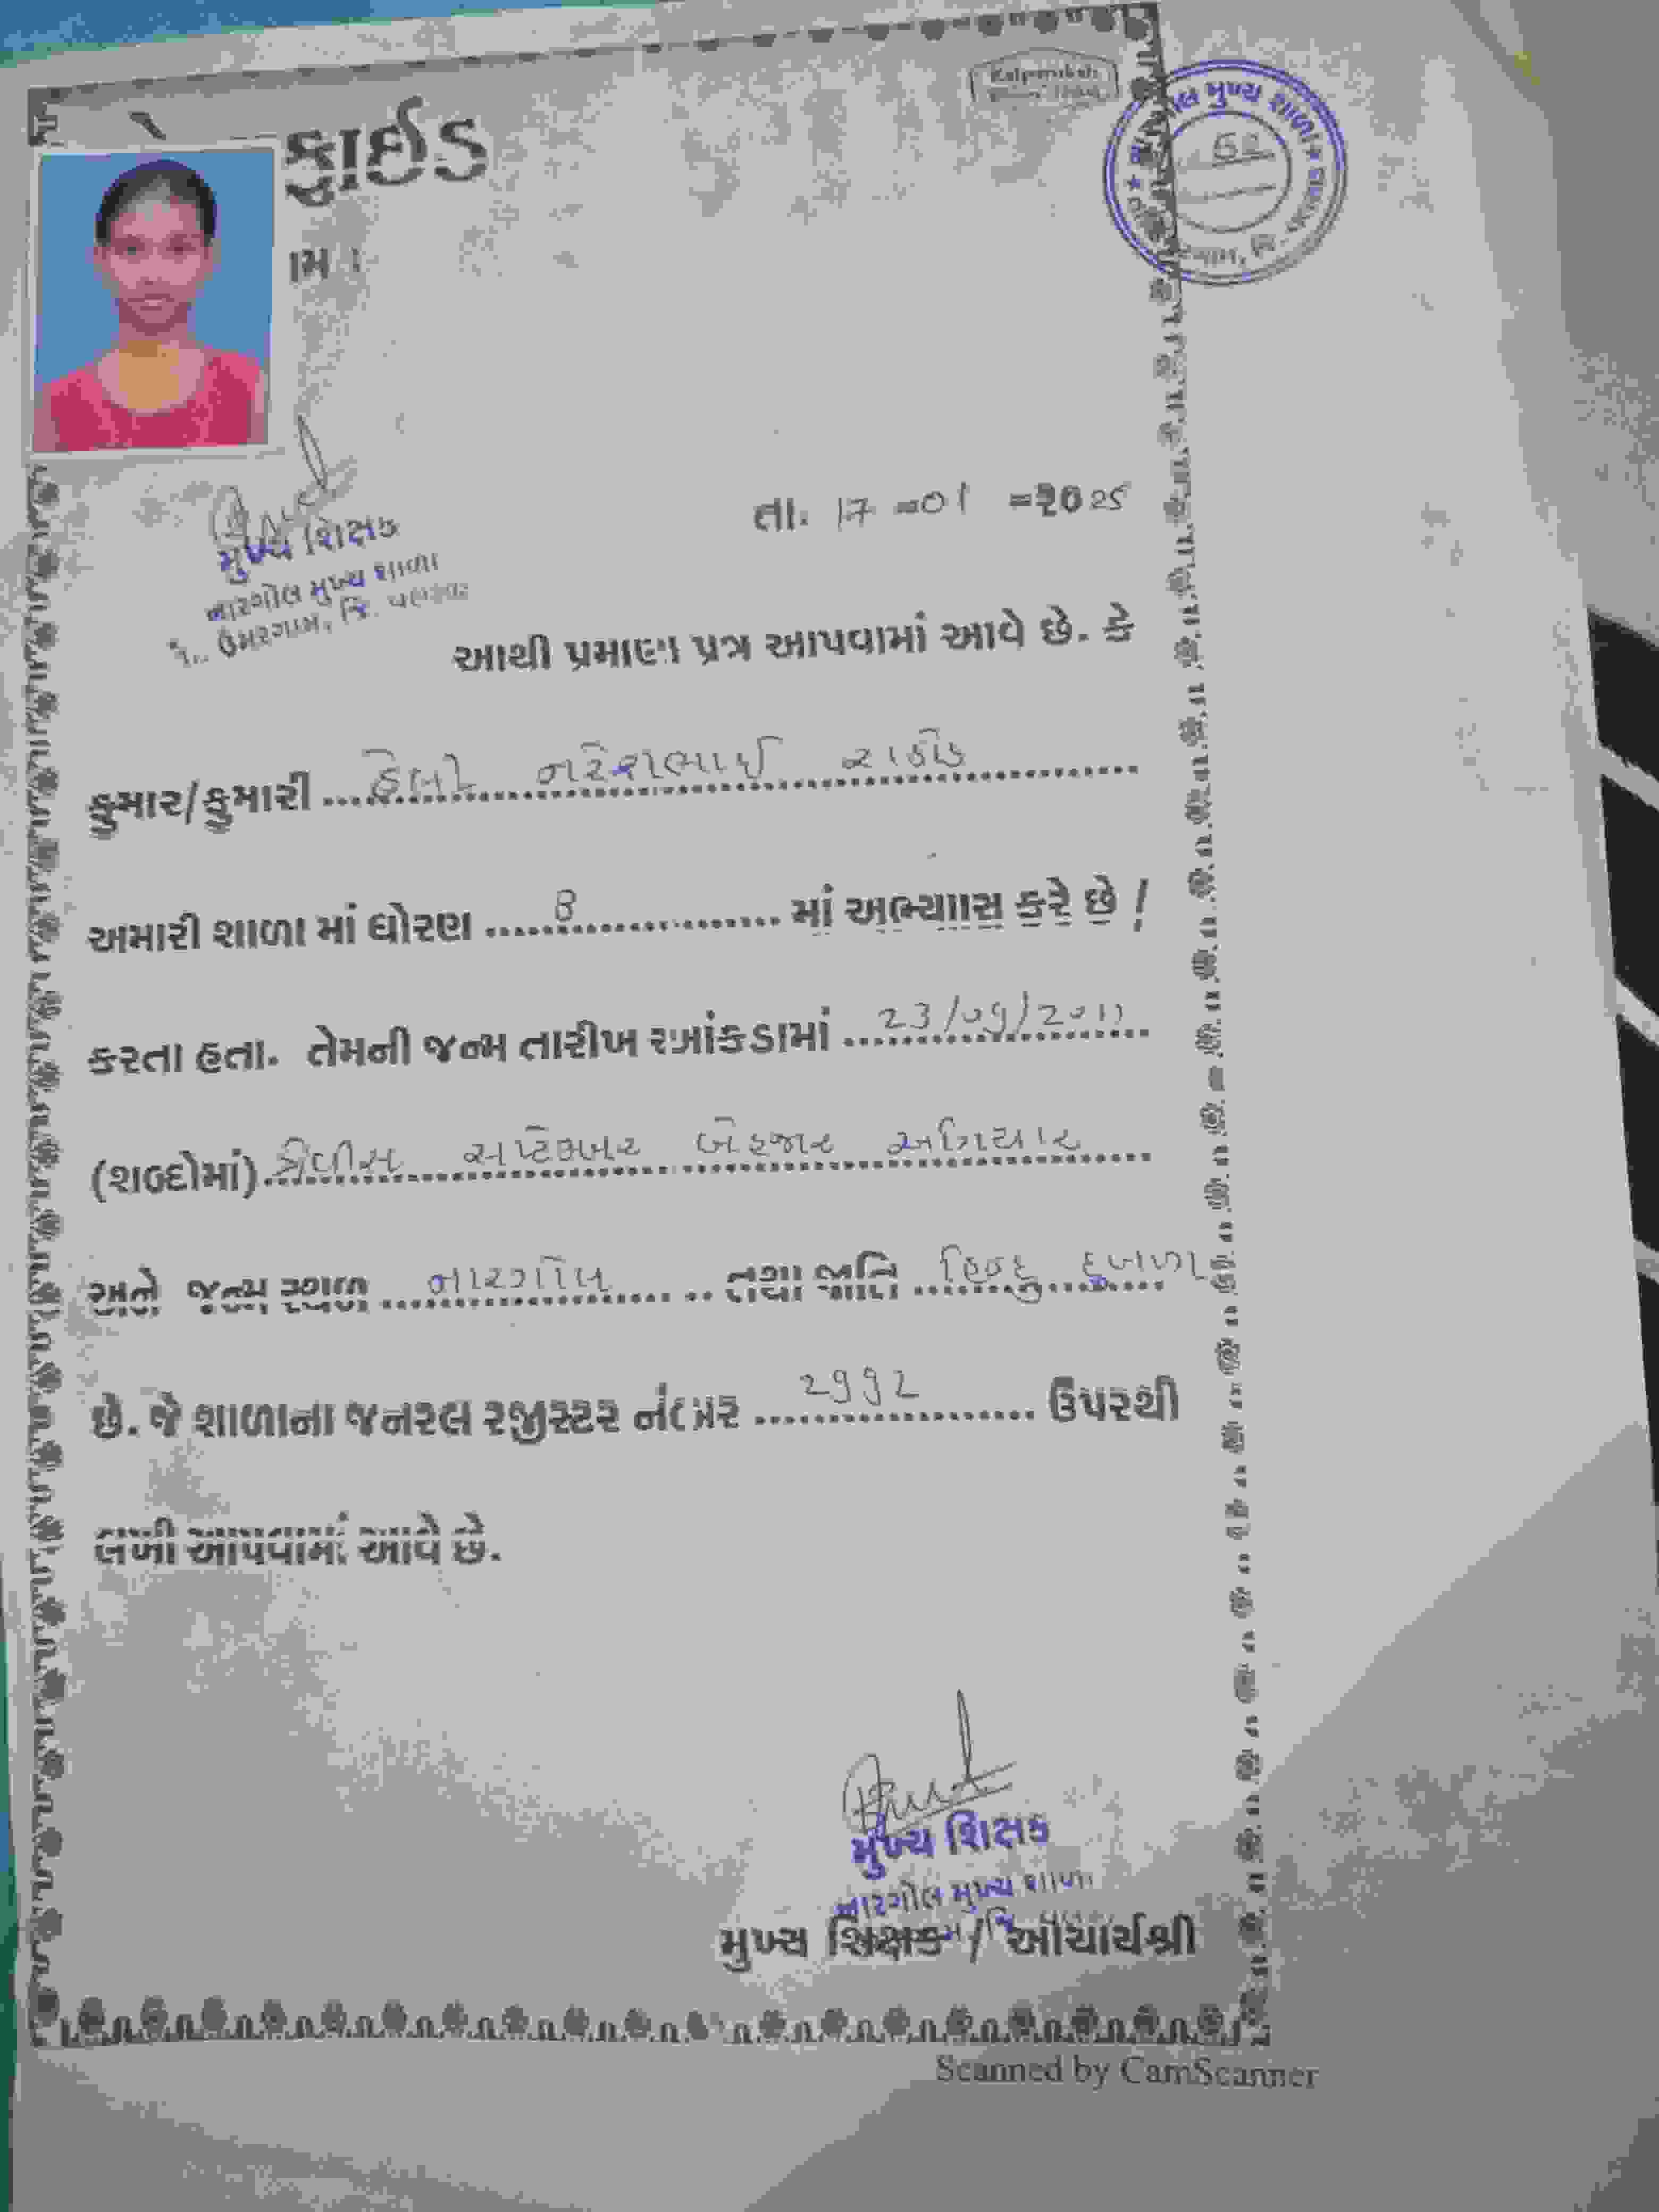 Kalpavruksh
મુખ્ય શાળા
62
ફાઈડ
તા. 17 =01 =૨૦25
મુખ્ય શિક્ષક
નારગોલ મુખ્ય શાળા
ઉમરગામ, જિ. વલસાડ
આથી પ્રમાણ પત્ર આપવામાં આવે છે. કે
કુમાર/કુમારી નરેશભાઈ રાઠોડ
અમારી શાળા માં ધોરણ 8 માં અભ્યાાસ કરે છે /
કરતા હતા. તેમની જન્મ તારીખ રઆંકડામાં 23/09/2011
(શબ્દોમાં) ત્રેવીસ સપ્ટેમ્બર બેહજાર અગિયાર
અને જન્મ સ્થળ નારગોલ તથા જાતિ હિન્દુ દુબળા
છે. જે શાળાના જનરલ રજીસ્ટર નંબર ઉપરથી
લખી આપવામાં આવે છે.
મુખ્ય શિક્ષક
નારગોલ મુખ્ય શાળા
મુખ્ય શિક્ષક / આચાર્યશ્રી
Scanned by CamScanner